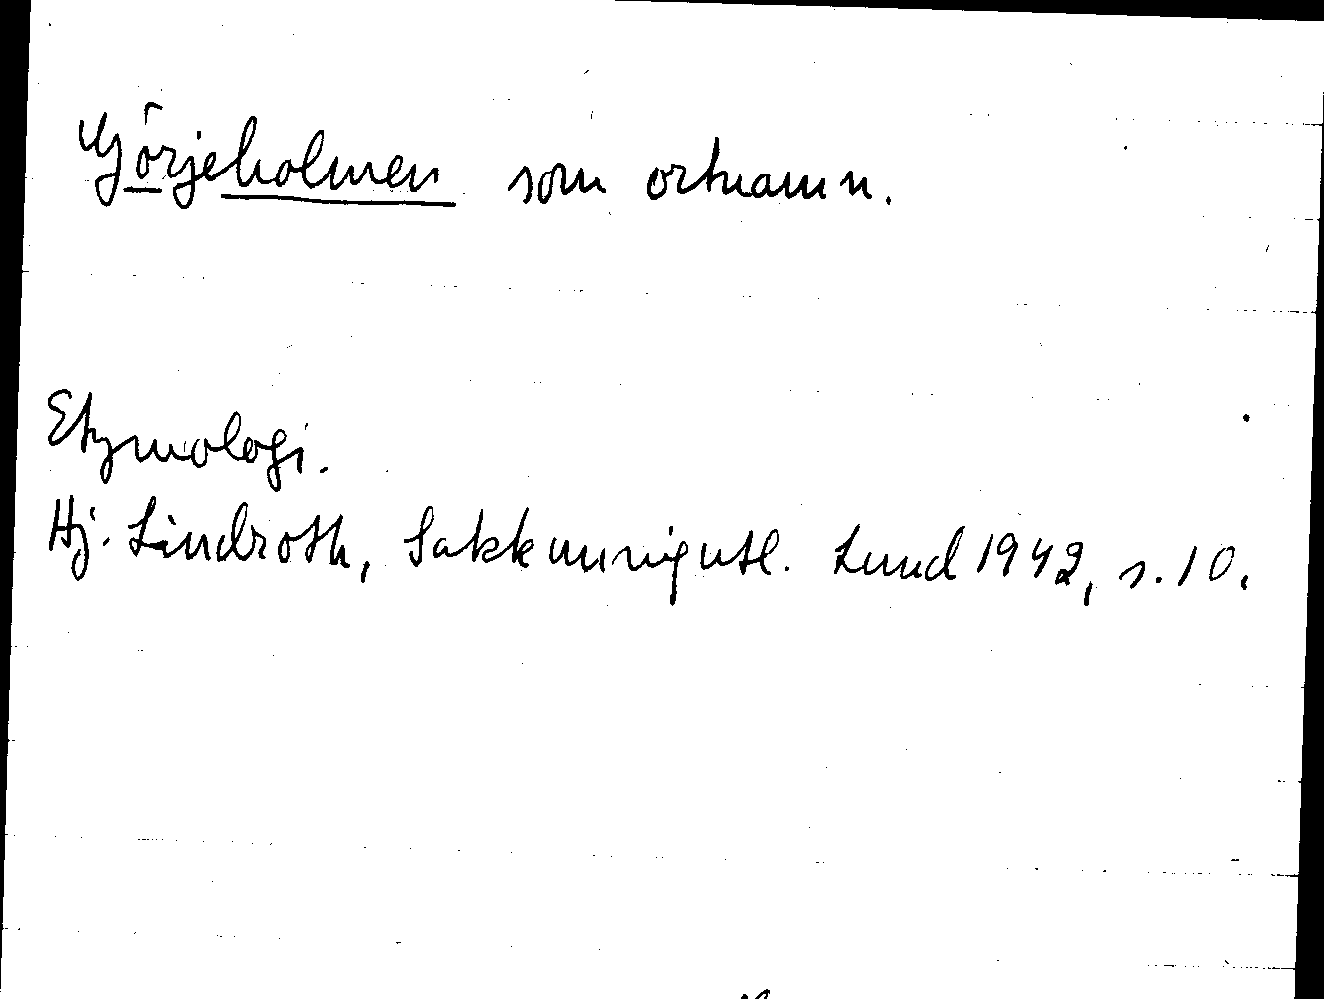 Görjeholmen som ortnamn.
Etymologi.
Hj. Lindroth, Sakkunnigutl. Lund 1942, s. 10.